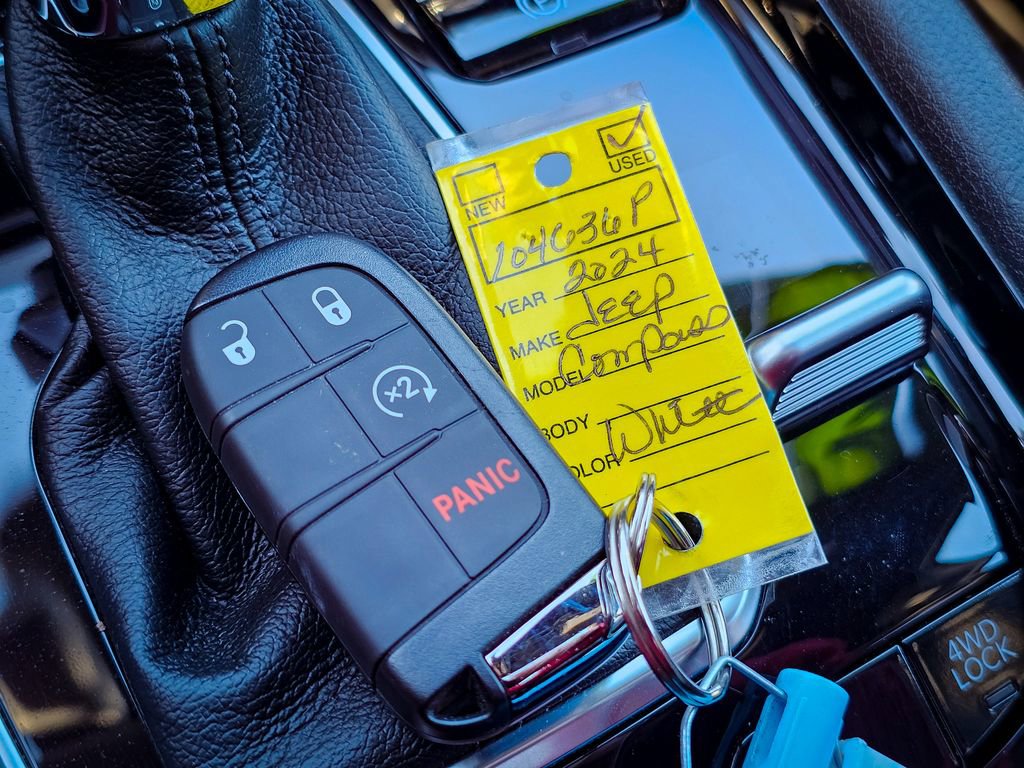 NEW
USED
104636P
YEAR 2024
MAKE Jeep
MODEL Compass
BODY
COLOR White
x2
PANIC
4WD
LOCK